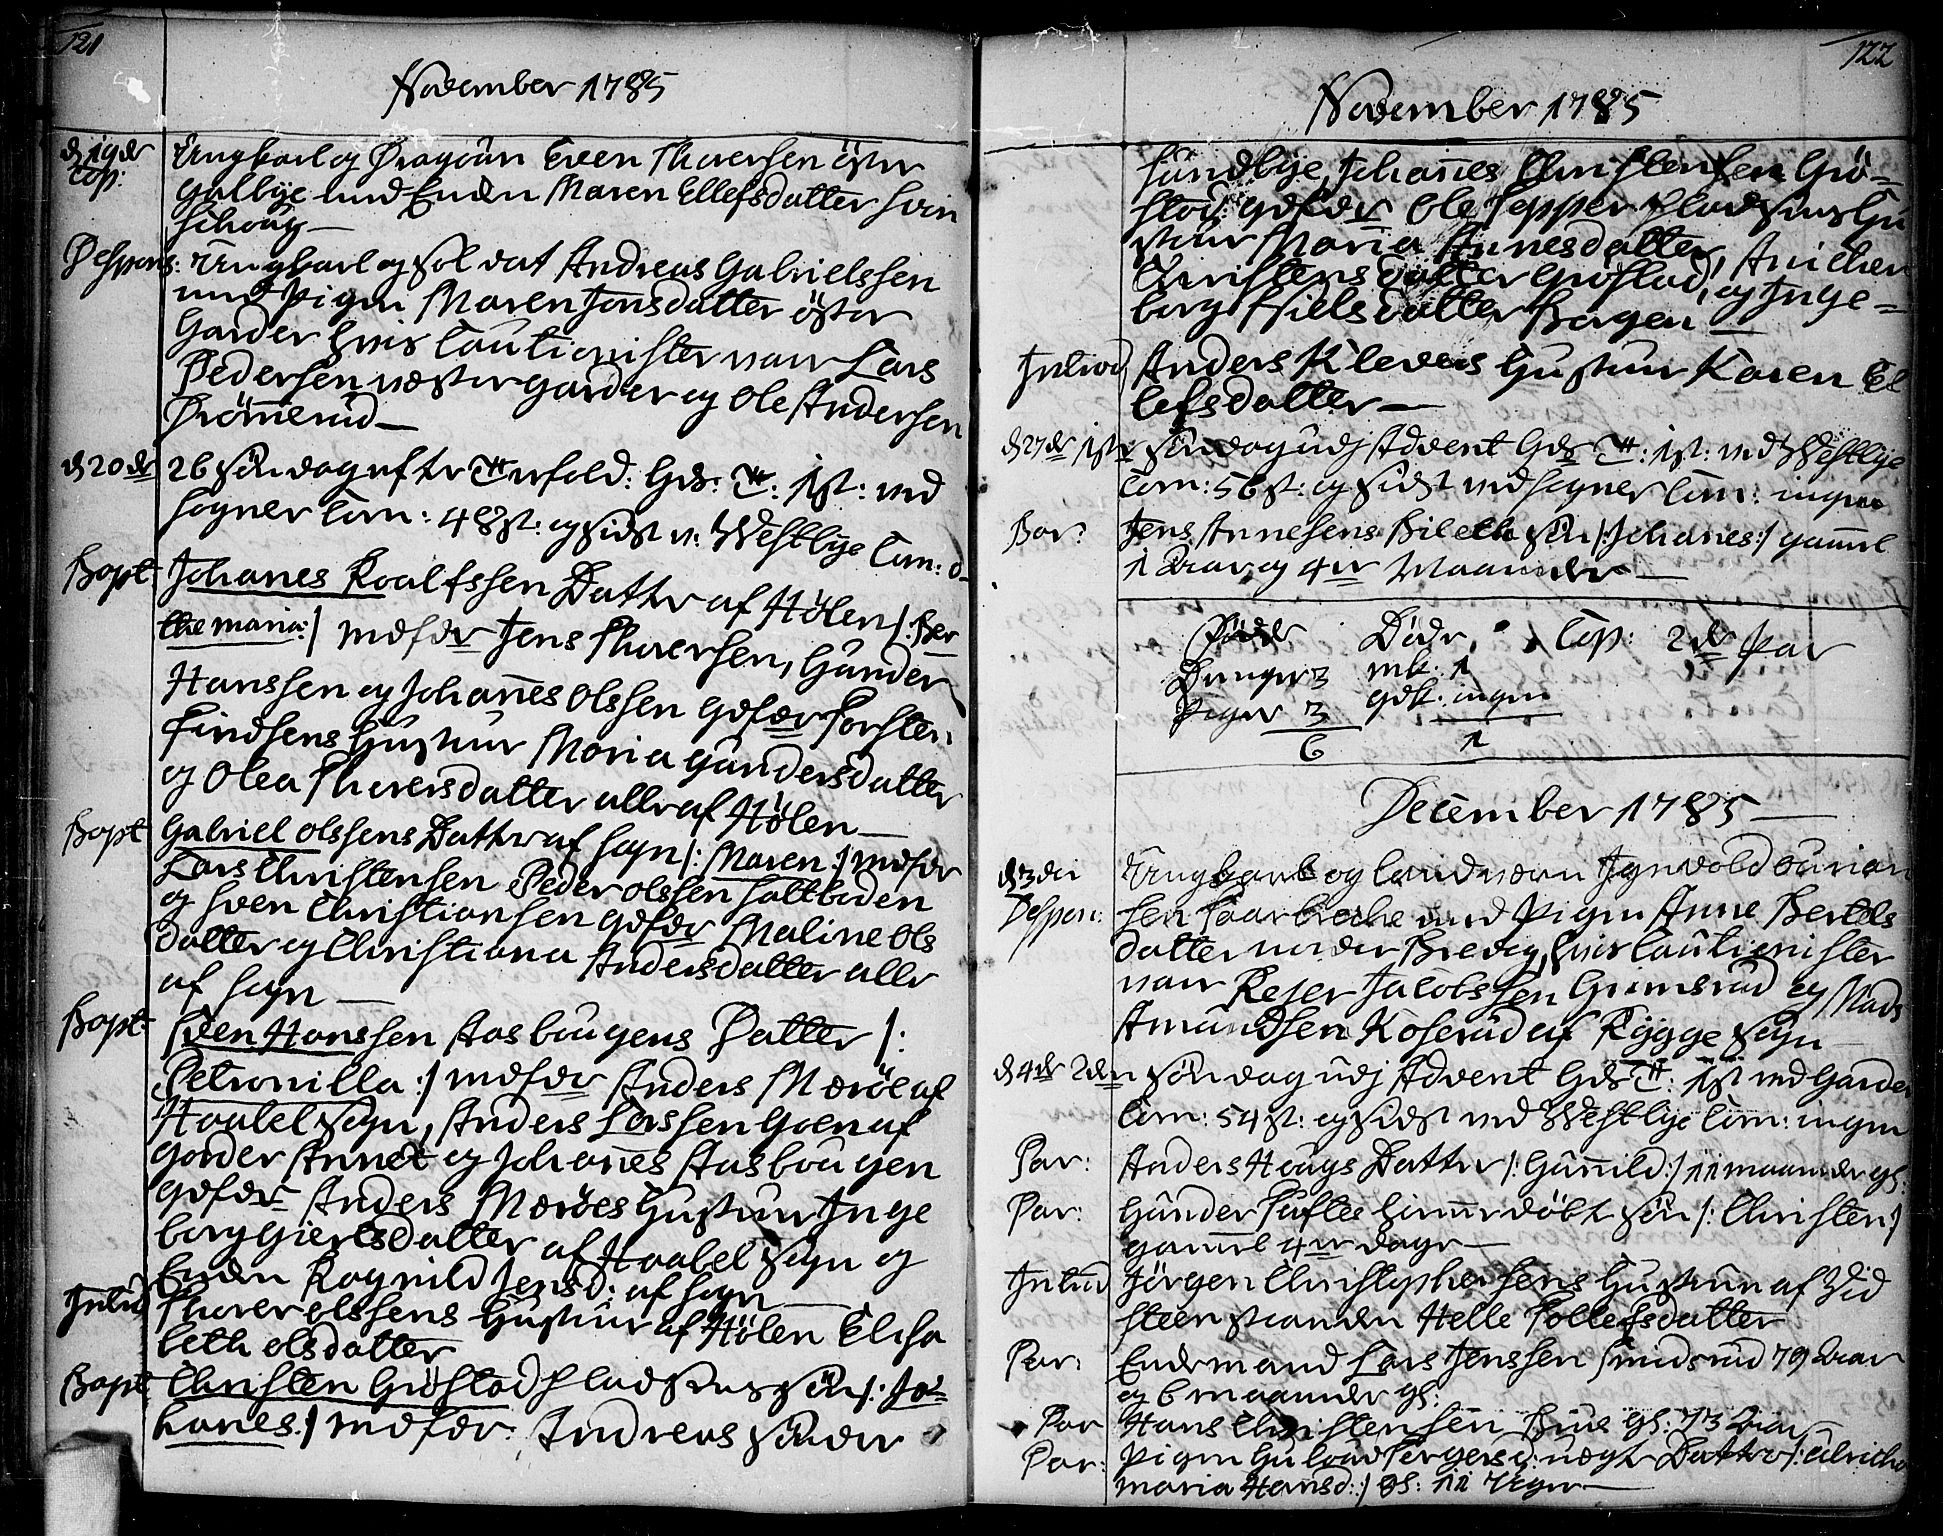 121
November 1785
d 19de Ungkarl og Dragoun Even Thoersen öster
Cop: Galbye med Enken Maren Ellefsdatter Svin
schoug —
Despons: Ungkarl og Soldat Andreas Gabrielssen
med Pigen Maren Jonsdatter öster
Garder hvis Cautionister var Lars
Pedersen væster garder og Ole Andersen
Drömerud —
d 20de 26 Söndag efter Trinfold: Gds: T: 1st: ved
Sogner Com: 48 st: og sidst v: Westbye Com: 0
Bapt Johanes Roalfssen Datter af Hölen /: Ber
the maria :/ mdfdr Jens Thoersen, Gunder
Hanssen og Johañes Olssen qdfdr Torsten
Findsens Hustrue Maria Gundersdatter
og Olea Thorersdatter alle af Hölen —
Bapt Gabriel Olssens Datter af Sogn /: Maren :/ mdfdr
Lars Christensen Peder Olssen Saltboden
og Sven Christiansen qdfdr Maline Ols
datter og Christiana Andersdatter alle
af Sogn —
Bapt Sven Hanssen Aasbougens Datter /:
Petronilla :/ mdfdr Anders Moröe af
Haabel Sogn, Anders Larssen Goen af
Garder Annex og Johañes Aasbougen
qdfdr Anders Moröes Hustrue Inge
borg Giertsdatter af Haabel Sogn og
Enken Ragnild Jensd: af Sogn —
Introd Thorer Olssens Hustrue af Hölen Elisa
beth olsdatter
Bapt Christen Gröstad Pladsens Sön /: Jo=
hanes :/ mdfdr: Andreas Sönder
122
November 1785
Sundbye, Johañes Christensen Grö=
stad: qdfdr Ole Tepper Pladsens Hu
strue Maria Annesdatter, Anichen
Christensdatter Gröstad, og Inge=
borg Nielsdatter Hagen —
Introd Anders Klevens Hustrue Karen El
lefsdatter —
d 27de 1ste Söndag udj Advent Gds T: 1st: ved Westbye
Com: 56 st: og sidst ved Sogner Com: ingen
Par: Jens Annesens Bileth Sön /: Johanes :/ gamel
1 Aar og 4re Maaneder —
Födde Döde Cop: 2de Par
Drenge 3 mk: 1
Piger 3 qdk: ingen
6 1
December 1785 —
d 3die Ungkarl og landværn Ingvold Gurian
Despon: sen Saarbreche med Pigen Anne Bertels
datter neder Brevig, hvis Cautionister
var Rejer Jacobssen Grimsrud og Mads
Amundsen Koserud af Rygge Sogn
d 4de 2den Söndag udj Advent Gds T: 1st ved Garder
Com: 54 st: og sidst ved Westbye Com: ingen
Par: Anders Hougs Datter /: Guñild :/ 11 maaneder gl:
Par: Gunder Tuftes hieme döbt Sön /: Christen :/
gamel 4re dage —
Introd Jörgen Christophersens Hustrue af Hvid
steen Stranden Helle Tollefsdatter
Par: Enkemand Lars Jenssen Smidsrud 79 Aar
og 6 maaneder gl:
Par Hans Christensen Bue gl: 73 Aar
Par: Pigen Guloug Torgersd: uægte Datter /: Ulricha
maria Hansd: :/ gl: 11 Uger —